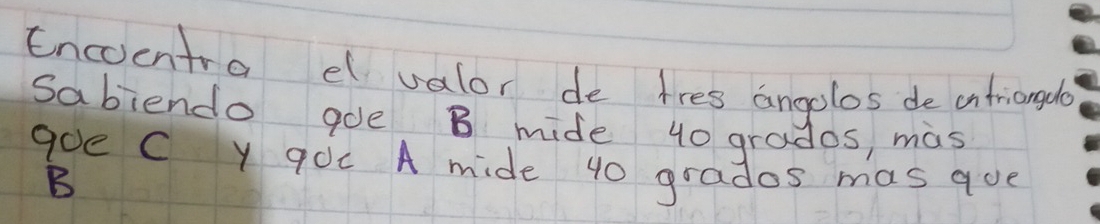 Encuentra el valor de tres ángulos de un triangulo
Sabiendo que B mide 40 grados, màs
que C y que A mide 40 grados mas que
B